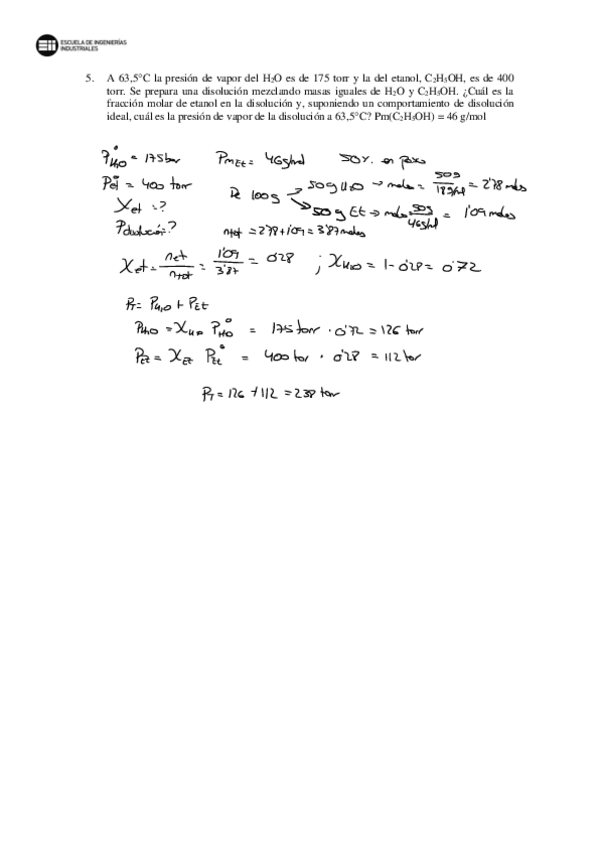 ESCUELA DE INGENIERÍAS
INDUSTRIALES
5. A 63,5°C la presión de vapor del H₂O es de 175 torr y la del etanol, C₂H₅OH, es de 400
torr. Se prepara una disolución mezclando masas iguales de H₂O y C₂H₅OH. ¿Cuál es la
fracción molar de etanol en la disolución y, suponiendo un comportamiento de disolución
ideal, cuál es la presión de vapor de la disolución a 63,5°C? Pm(C₂H₅OH) = 46 g/mol
P°H₂O = 175 torr PmEt = 46 g/mol 50% en peso
P°et = 400 torr De 100g → 50g H₂O → moles = 50g / 18g/mol = 2'78 moles
Xet = ? → 50g Et → moles 50g / 46g/mol = 1'09 moles
Pdisolución? ntot = 2'78 + 1'09 = 3'87 moles
Xet = net / ntot = 1'09 / 3'87 = 0'28 ; XH₂O = 1 - 0'28 = 0'72
PT = PH₂O + PEt
PH₂O = XH₂O P°H₂O = 175 torr · 0'72 = 126 torr
PEt = XEt P°Et = 400 tor · 0'28 = 112 tor
PT = 126 + 112 = 238 torr